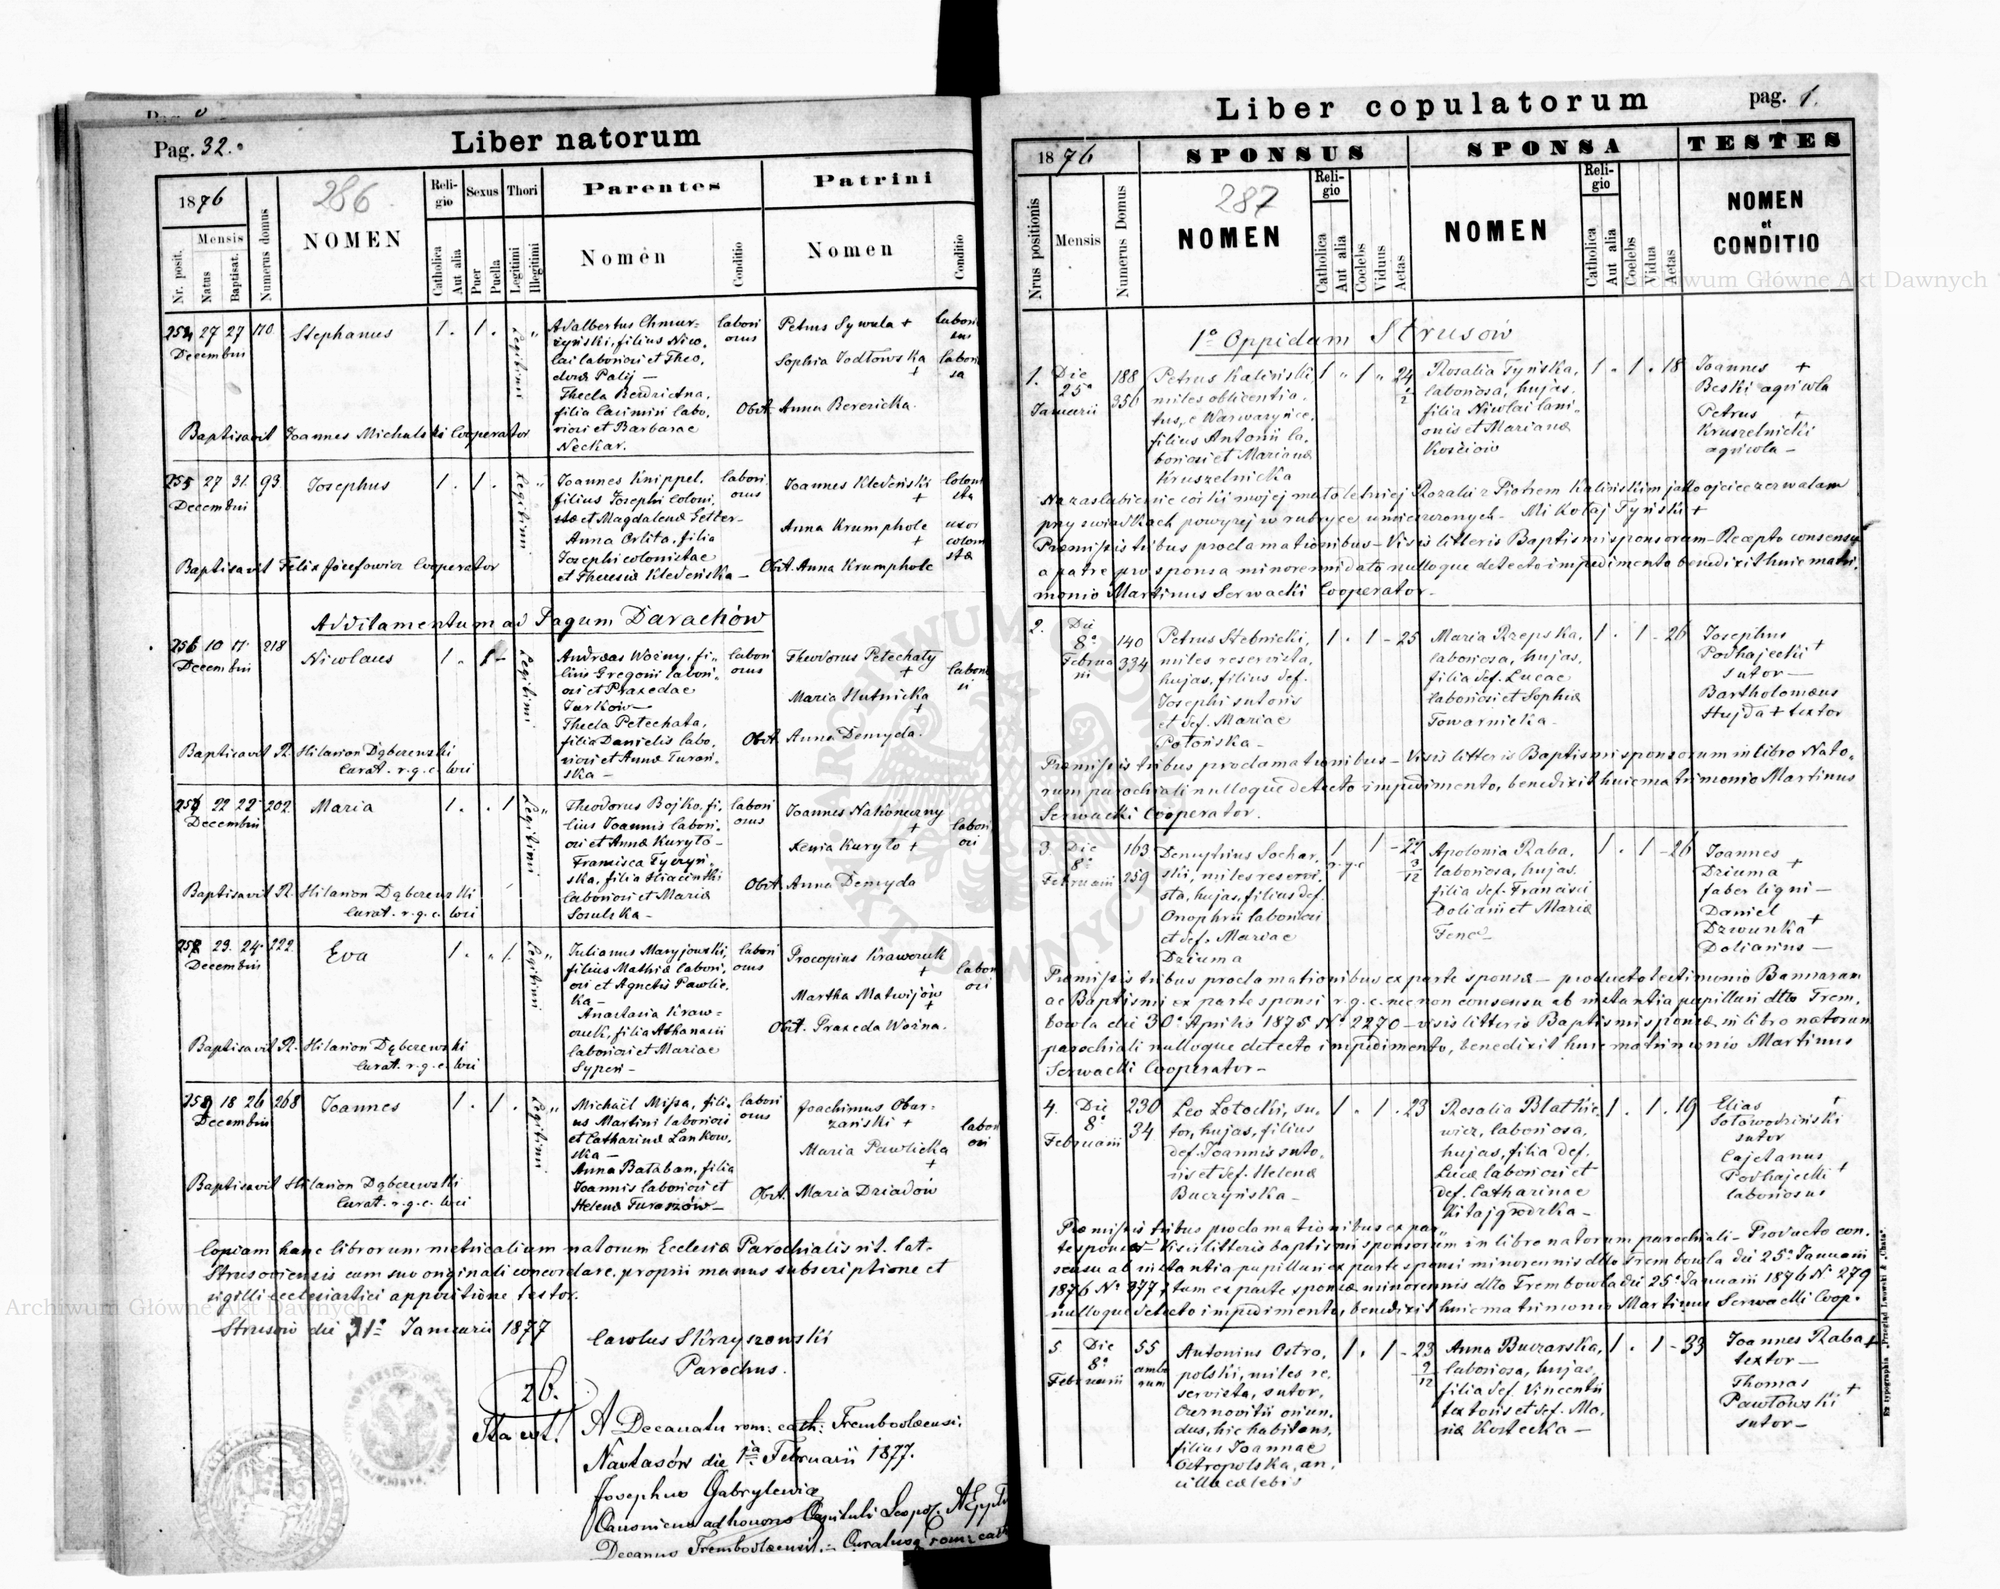 Pag. 32.
Liber natorum
1876
Nr. posit.
Mensis
Natus
Baptisat.
Numerus domus
286
NOMEN
Religio
Catholica
Aut alia
Sexus
Puer
Puella
Thori
Legitimi
Illegitimi
Parentes
Nomen
Conditio
Patrini
Nomen
Conditio
254 27 27 170
Decembris
Stephanus
1 . 1 .
Legitimi
Adalbertus Chmur-
zyński, filius Nico-
lai laboriosi et Theo-
doræ Palij —
Thecla
filia Casimiri labo-
riosi et Barbarae
Neckar.
labori
osus
Petrus Sywula +
Sophia Jodłowska
+
Obst. Anna Berezicka.
labori
sus
laborio
sa
Baptisavit Joannes Michalski Cooperator
255 27 31 93.
Decembris
Josephus
1 . 1 .
Legitimi
Joannes Knippel,
filius Josephi coloni-
stæ et Magdalenæ Getter —
Anna Orlita, filia
Josephi colonistae
et Theresiæ Klevenska —
labori
osus
Joannes Klevenski
+
Anna Krumphole
+
Obst. Anna Krumphole
coloni
sta
uxor
coloni
stæ
Baptisavit Felix Józefowicz Cooperator
Additamentum ad Pagum Darachów
256 10 11 218
Decembris
Nicolaus
1 . 1 -
Legitimi
Andreas Woźny, fi-
lius Gregorii labori-
osi et Praxedae
Jurków —
Thecla Petechata,
filia Danielis labo-
riosi et Annæ Turań-
ska —
labori
osus
Theodorus Petechaty
+
Maria Hutnicka
+
Obst. Anna Demyda.
labori
si
Baptisavit R. Hilarion Dąbczewski
Curat. r. g. c. loci
257 22 22 202.
Decembris
Maria
1 . . 1
Legitimi
Theodorus Bojko, fi-
lius Joannis labori-
osi et Annæ Kuryło —
Francisca Tyczyń-
ska, filia Hiacinthi
laboriosi et Mariæ
Soculska —
labori
osus
Joannes Nakoneczny
+
Xenia Kuryło +
Obst. Anna Demyda
labori
osi
Baptisavit R. Hilarion Dąbczewski
Curat. r. g. c. loci
258 23. 24. 222.
Decembris
Eva
1 . " 1.
Legitimi
Julianus Maryjowski,
filius Mathiæ labori-
osi et Agnetis Pawlic-
ka —
Anastasia Kraw-
czuk, filia Athanasii
laboriosi et Mariae
Syperi —
labori
osus
Procopius Krawczuk
+
Martha Matwijów
+
Obst. Praxeda Woźna.
labori
osi
Baptisavit R. Hilarion Dąbczewski
Curat. r. g. c. loci
259 18 26 268
Decembris
Joannes
1 . 1 .
Legitimi
Michaël Missa, fili-
us Martini laboriosi
et Catharinæ Lankow-
ska —
Anna Bataban, filia
Joannis laboriosi et
Helenæ Turaszów —
labori
osus
Joachimus Obar-
zański +
Maria Pawlicka
+
Obst. Maria Dziadów
labori
osi
Baptisavit Hilarion Dąbczewski
Curat. r. g. c. loci
Copiam hanc librorum metricalium natorum Ecclesiæ Parochialis rit. lat.
Strusoviensis cum suo originali concordare, proprii manus subscriptione et
sigilli ecclesiastici appositione testor.
Strusów die 31º Januarii 1877
Carolus Skrayszewski
Parochus.
26.
Ita est!
A Decanatu rom: cath: Trembovlaensi.
Nastasów die 1ma Februarii 1877.
Josephus Gabrylewicz
Canonicus ad honores Capituli Leopol.
Decanus Trembovlaensis — Curatus rom: cath
Liber copulatorum
pag. 1.
1876
SPONSUS
SPONSA
TESTES
Nrus positionis
Mensis
Numerus Domus
287
NOMEN
Religio
Catholica
Aut alia
Coelebs
Viduus
Aetas
NOMEN
Religio
Catholica
Aut alia
Coelebs
Vidua
Aetas
NOMEN
et
CONDITIO
1º Oppidum Strusów
1. Die
25º
Januarii
188
356
Petrus Kaliński,
miles oblicentia-
tus, e Warwaryńce,
filius Antonii la-
boriosi et Marianæ
Kruszelnicka
1 " 1 " 24
1/2
Rosalia Tyńska,
laboriosa, hujas,
filia Nicolai lani-
onis et Marianæ
Kościów
1 . 1 . 18
Joannes +
Beski agricola
Petrus
Kruszelnicki +
agricola —
Na zaślubienie córki mojej małoletniej Rozalii z Piotrem Kalińskim jako ojciec zezwalam
przy świadkach powyżej w rubryce umieszczonych — Mikołaj Tyński +
Præmissis tribus proclamationibus — Visis litteris Baptismi sponsorum — Recepto consensu
a patre pro sponsa minorenni dato nulloque detecto impedimento benedixit huic matri-
monio Martinus Serwacki Cooperator —
2. Die
8º
Februa
rii
140
334
Petrus Stebnicki,
miles reservista,
hujas, filius def.
Josephi sutoris
et def. Mariae
Potońska —
1 . 1 - 25
Maria Rzepska,
laboriosa, hujas,
filia def. Lucae
laboriosi et Sophiæ
Towarnicka —
1 . 1 - 26
Josephus
Podhajecki +
sutor —
Bartholomæus
Hujda + textor
Præmissis tribus proclamationibus — Visis litteris Baptismi sponsorum in libro Nato-
rum parochiali nulloque detecto impedimento, benedixit huic matrimonio Martinus
Serwacki Cooperator.
3. Die
8º
Februarii
163
259
Demytrius Sochar-
ski, miles reservi-
sta, hujas, filius def.
Onophrii laboriosi
et def. Mariae
Dziuma
1
r.g.c
1 - 22
3/12
Apolonia Raba,
laboriosa, hujas,
filia def. Francisci
Doliarii et Mariæ
Fenc —
1 . 1 - 26
Joannes
Dziuma +
faber ligni —
Daniel
Dzwunka +
Doliarius —
Præmissis tribus proclamationibus ex parte sponsæ — producto testimonio Bannorum
ac Baptismi ex parte sponsi r. g. c. nec non consensu ab instantia pupillari dtto Trem-
bowla die 30º Aprilis 1875 Nº 2270 — visis litteris Baptismi sponsæ in libro natorum
parochiali nulloque detecto impedimento, benedixit huic matrimonio Martinus
Serwacki Cooperator —
4. Die
8º
Februarii
230
34
Leo Lotocki, su-
tor, hujas, filius
def. Joannis suto-
ris et def. Helenæ
Buczyńska —
1 . 1 . 23
Rosalia Blathie-
wicz, laboriosa,
hujas, filia def.
Lucæ laboriosi et
def. Catharinae
Kitajgrodzka —
1 . 1 . 19
Elias +
Sołowodziński
sutor
Cajetanus
Podhajecki +
laboriosus
Præmissis tribus proclamationibus ex par-
te sponsæ — Visis litteris baptismi sponsorum in libro natorum parochiali — Producto con-
sensu ab instantia pupillari ex parte sponsi minorennis dtto Trembowla die 25º Januarii
1876 Nº 377, tum ex parte sponsæ minorennis dtto Trembowla die 25º Januarii 1876 Nº 279
nulloque detecto impedimento, benedixit huic matrimonio Martinus Serwacki Coop.
5. Die
8º
Februarii
55
ambo
rum
Antonius Ostro-
polski, miles re-
servista, sutor,
Czernovitii oriun-
dus, hic habitans,
filius Joannae
Ostropolska, an-
cillæ cælebis
1 . 1 - 23
2/12
Anna Buczarska,
laboriosa, hujas,
filia def. Vincentii
textoris et def. Ma-
riæ Kostecka —
1 . 1 - 33
Joannes Raba +
textor —
Thomas
Pawłowski +
sutor —
Ex typographia „Przegląd Lwowski & „Chata"
Archiwum Główne Akt Dawnych
Archiwum Główne Akt Dawnych
ARCHIWUM GŁÓWNE AKT DAWNYCH